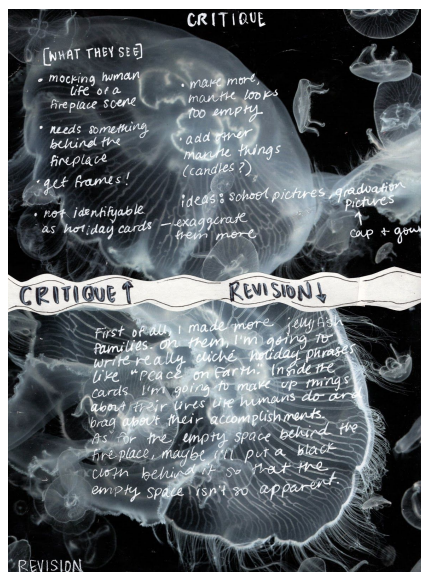 CRITIQUE
[WHAT THEY SEE]
• mocking human
life of a
fireplace scene
• needs something
behind the
fireplace
• get frames!
• not identifyable
as holiday cards
• make more,
mantle looks
too empty
• add other
mantle things
(candles?)
ideas: school pictures, graduation
pictures
↑
cap + gown
— exaggerate
them more
CRITIQUE ↑ REVISION ↓
First of all, I made more jellyfish
families. On them, I'm going to
write really cliché holiday phrases
like "Peace on Earth." Inside the
cards I'm going to make up things
about their lives like humans do and
brag about their accomplishments.
As for the empty space behind the
fireplace, maybe i'll put a black
cloth behind it so that the
empty space isn't so apparent.
REVISION